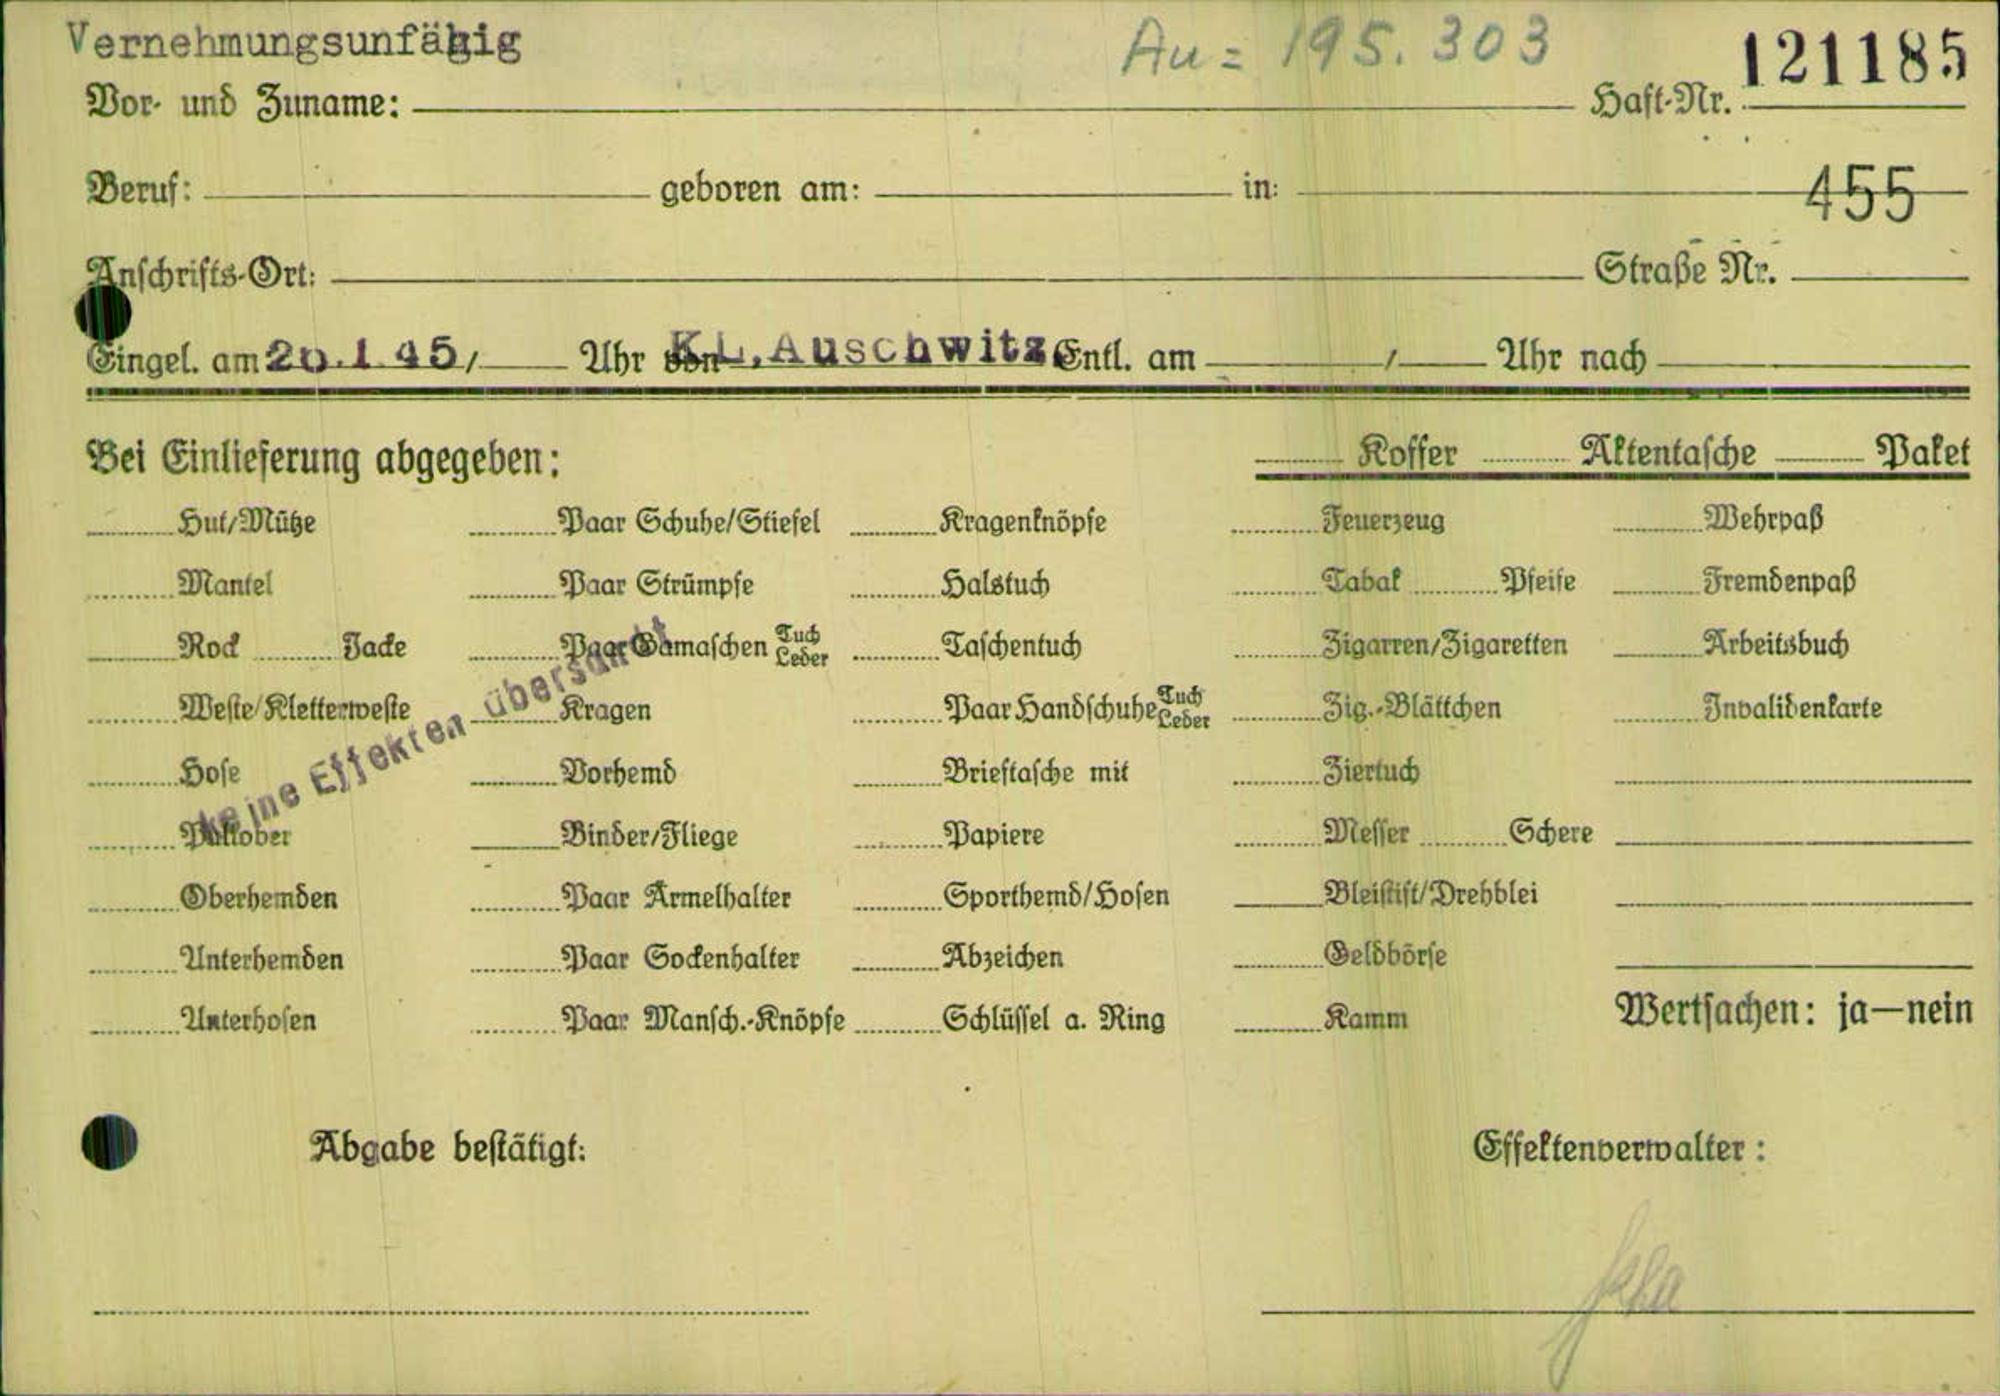 Vernehmungsunfähig
Au = 195.303
121185
Vor- und Zuname: Haft-Nr.
455
Beruf: geboren am: in:
Anschrifts-Ort: Straße Nr.
Eingel. am 26.1.45 / Uhr von KL. Auschwitz Entl. am / Uhr nach
Bei Einlieferung abgegeben: Koffer Aktentasche Paket
Hut/Mütze Paar Schuhe/Stiefel Kragenknöpfe Feuerzeug Wehrpaß
Mantel Paar Strümpfe Halstuch Tabak Pfeife Fremdenpaß
Rock Jacke Paar Gamaschen Tuch Leder Taschentuch Zigarren/Zigaretten Arbeitsbuch
Weste/Kletterweste Kragen Paar Handschuhe Tuch Leder Zig.-Blättchen Invalidenkarte
Hose Vorhemd Brieftasche mit Ziertuch
Pullover Binder/Fliege Papiere Messer Schere
Oberhemden Paar Ärmelhalter Sporthemd/Hosen Bleistift/Drehblei
Unterhemden Paar Sockenhalter Abzeichen Geldbörse
Unterhosen Paar Mansch.-Knöpfe Schlüssel a. Ring Kamm Wertsachen: ja—nein
keine Effekten übersandt
Abgabe bestätigt: Effektenverwalter: